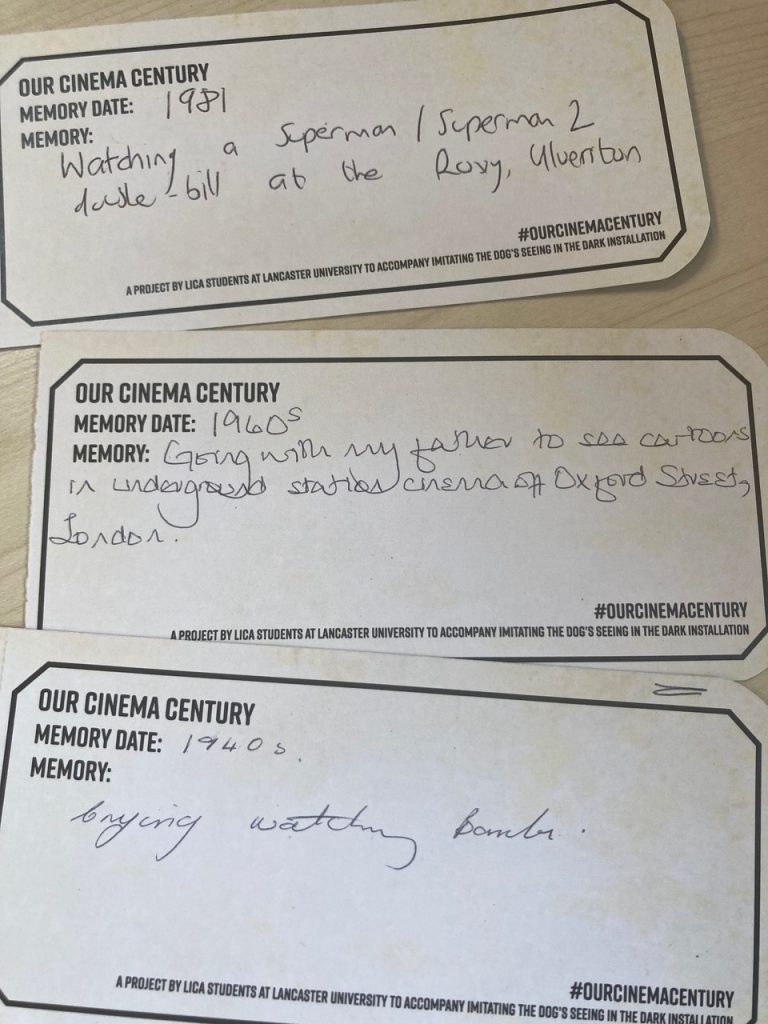 OUR CINEMA CENTURY
MEMORY DATE: 1981
MEMORY:
Watching a Superman / Superman 2
double-bill at the Roxy, Ulverston
#OURCINEMACENTURY
A PROJECT BY LICA STUDENTS AT LANCASTER UNIVERSITY TO ACCOMPANY IMITATING THE DOG'S SEEING IN THE DARK INSTALLATION
OUR CINEMA CENTURY
MEMORY DATE: 1960s
MEMORY: Going with my father to see cartoons
in underground station cinema off Oxford Street,
London.
#OURCINEMACENTURY
A PROJECT BY LICA STUDENTS AT LANCASTER UNIVERSITY TO ACCOMPANY IMITATING THE DOG'S SEEING IN THE DARK INSTALLATION
OUR CINEMA CENTURY
MEMORY DATE: 1940s.
MEMORY:
Crying watching Bambi.
#OURCINEMACENTURY
A PROJECT BY LICA STUDENTS AT LANCASTER UNIVERSITY TO ACCOMPANY IMITATING THE DOG'S SEEING IN THE DARK INSTALLATION